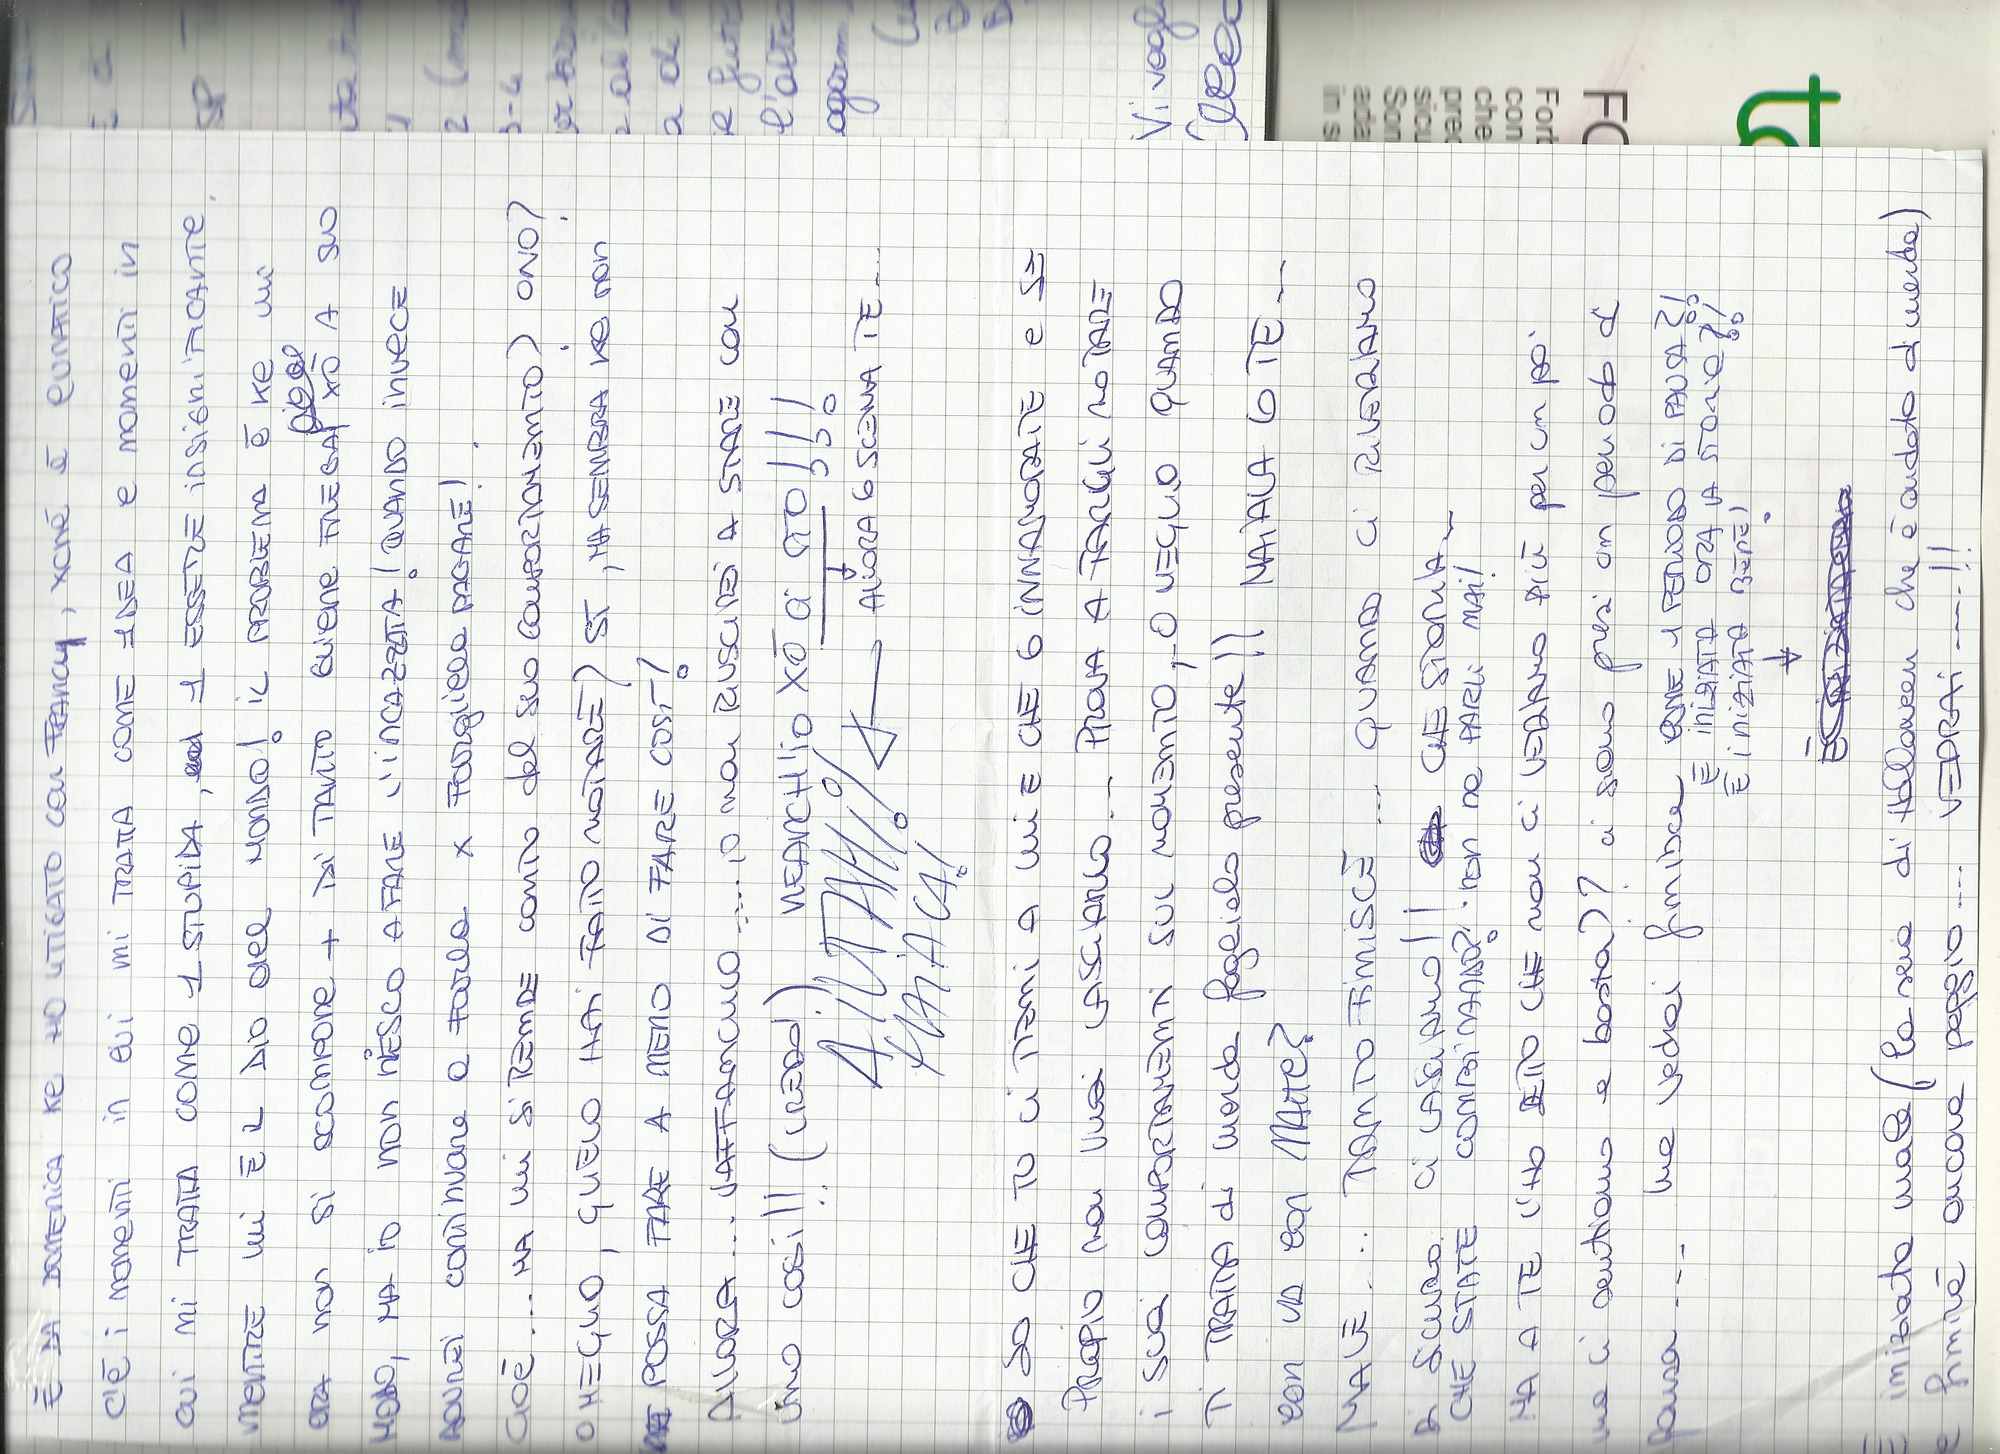 È DA DOMENICA KE HO LITIGATO CON FRANCY, XCHÉ È LUNATICO
C'È i MOMENTI in cui mi TRATTA COME 1 DEA e MOMENTI in
cui mi TRATTA COME 1 STUPIDA, 1 ESSERE INSIGNIFICANTE.
MENTRE lui È IL DIO del MONDO! IL PROBLEMA È KE lui
ORA non si SCOMPONE + DI TANTO gliene FREGA XÒ A SUO
MODO, MA io NON RIESCO A FARE L'INCAZZATA! QUANDO INVECE
DOVREI CONTINUARE a FARLA X FARGLIELA PAGARE!
CIOÈ.... MA lui SI RENDE conto del SUO COMPORTAMENTO? O NO?
O MEGLIO, GLIELO HAI FATTO NOTARE? SI, MA SEMBRA KE NON
POSSA FARE A MENO DI FARE COSÌ!
ALLORA... VAFFANCULO .... IO non RIUSCIREI A STARE con
uno così!! (CREDO!) NEANCH'IO XÒ Ci STO!!!
AIUTAMI! ALLORA 6 SCEMA TE...
AMICA!
SO CHE TU CI TIENI A lui E CHE 6 INNAMORATE e SE
PROPIO non vuoi LASCIARLO... PROVA A FARGLI NOTARE
i suoi COMPORTAMENTI SUL MOMENTO, O MEGLIO QUANDO
TI TRATTA di merda faglielo presente!! MAIALA 6 TE...
con VA con MATTE?
MALE.... TANTO FINISCE .... QUANDO CI RIVEDIAMO
DI SICURO CI LASCIAMO!! CHE STORIA...
CHE STATE COMBINANDO? non ne PARLI MAI!
MA A TE L'HO DETTO CHE non ci VEDIAMO PIÙ per un po'.
ma ci sentiamo e basta)? ci siamo presi un periodo d
pausa .... ma vedrai finisce COME 1 PERIODO DI PAUSA?!
È INIZIATA ORA LA STORIA?!
È INIZIATA BENE!
È
È iniziata male (la sera di Halloween che è andato di merda)
e finirà ancora peggio.... VEDRAI ....!!
SP
l'altro
Vi vogl
FO
Forb
con
che
prec
sicu
Son
in s